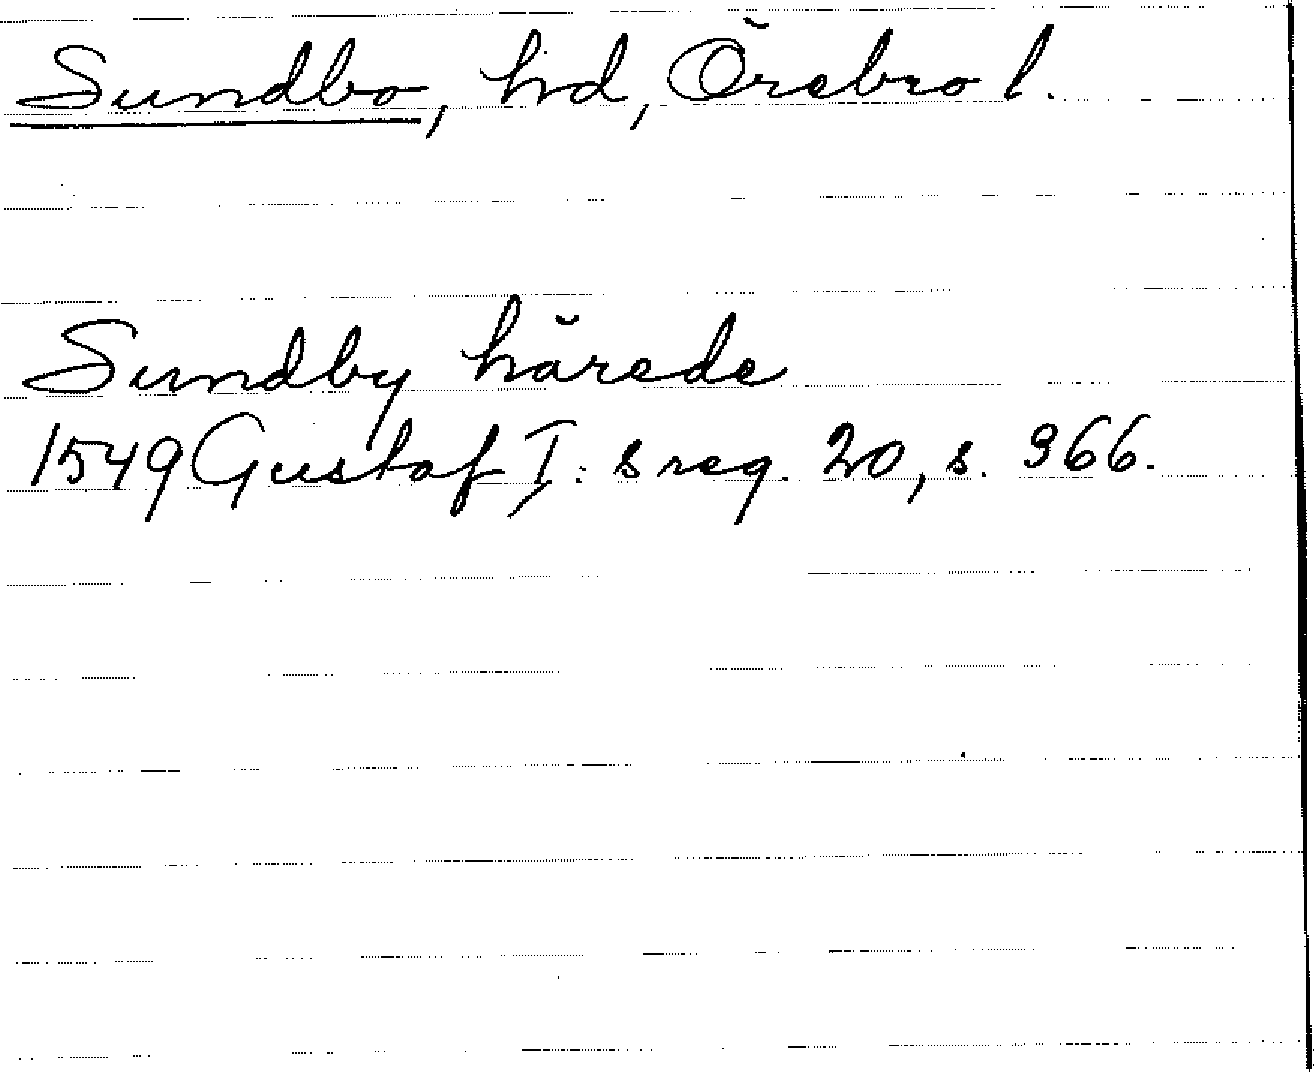 Sundbo, hd, Örebro l.
Sundby härede
1549 Gustaf I:s reg. 20, s. 366.